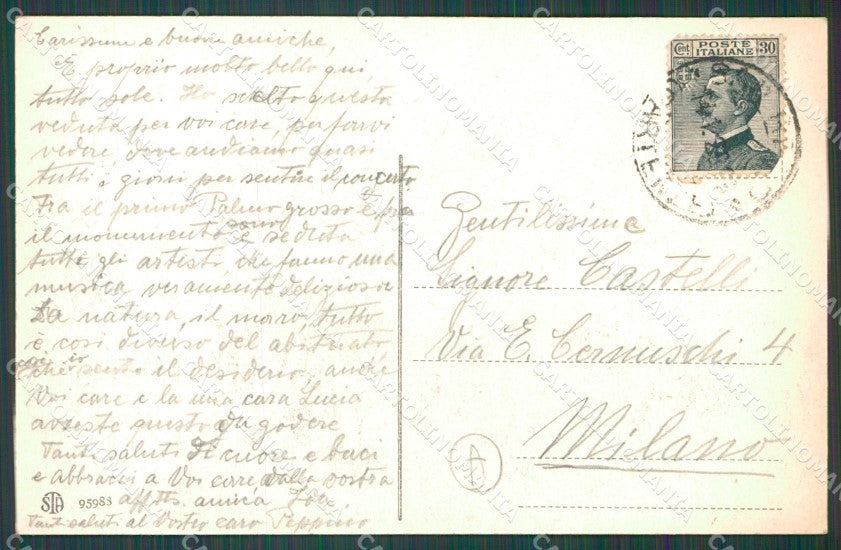 Carissime e buone amiche,
E proprio molto bello qui,
tutto sole. Ho scelto questa
veduta per voi care, per farvi
vedere, dove andiamo quasi
tutti i giorni per sentire il concerto
Fra il primo Palmo grosso e fra
il monumento sono e seduta
tutti gli artisti che fanno una
musica veramente deliziosa
La natura, il mare, tutto
e così diverso del abituato
che io sento il desiderio, anche
Voi care e la una cara Lucia
aveste questo da godere
Tanti saluti di cuore e baci
e abbracci a Voi care dalla vostra
afftts. amica
Tanti saluti al Vostro caro Peppino
STA 95983
Cent POSTE ITALIANE 30
Gentilissime
Signore Castelli
Via E. Cernuschi 4
Milano
A
CARTOLINOMANIA